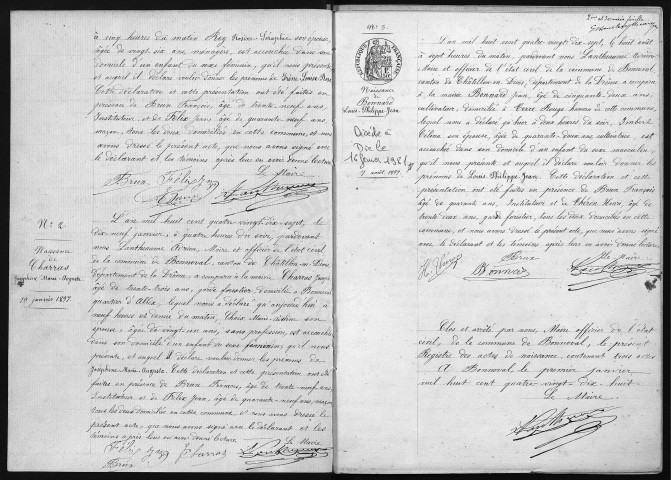 à cinq heures du matin Rey Rosine Séraphie son épouse,
âgée de vingt six ans, ménagère, est accouchée dans son
domicile d'un enfant du sexe féminin, qu'il nous présente
et auquel il déclare vouloir donner les prénoms de
Cette déclaration et cette présentation ont été faites en
présence de Brun François, âgé de trente neuf ans,
Instituteur, et de Félix Jean, âgé de quarante neuf ans,
maçon, tous les deux domiciliés en cette commune et nous
avons dressé le présent acte, que nous avons signé avec
le déclarant et les témoins après leur en avoir donné lecture
Le Maire
Brun Félix Jean
N° 2
Naissance
de
Charras
Joséphine Marie Auguste
19 janvier 1897.
L'an mil huit cent quatre vingt dix sept, le
dix neuf janvier, à quatre heures du soir, pardevant
nous Lantheaume Maire et officier de l'état civil
de la commune de Bonneval, canton de Châtillon en Diois,
Département de la Drôme, a comparu à la mairie Charras
âgé de trente trois ans, garde forestier domicilié à Bonneval
quartier d' lequel nous a déclaré qu'aujourd'hui à
neuf heures et demie du matin, Marie son
épouse, âgée de vingt ans, sans profession, est accouchée
dans son domicile d'un enfant du sexe féminin, qu'il nous
présente, et auquel il déclare vouloir donner les prénoms de
Joséphine Marie Auguste. Cette déclaration et cette présentation ont été
faites en présence de Brun François, âgé de trente neuf ans,
Instituteur et de Félix Jean, âgé de quarante neuf ans, maçon
tous les deux domiciliés en cette commune, et nous avons dressé le
présent acte, que nous avons signé avec le déclarant et les
témoins après leur en avoir donné lecture.
Le Maire
Félix Jean Charras
Brun
et dernière feuille
N° 3.
RÉPUBLIQUE FRANÇAISE
Naissance
de
Bonnard
Louis Philippe Jean
7 août 1897.
Décédé à
Die le
L'an mil huit cent quatre vingt dix sept, le huit août
à sept heures du matin, pardevant nous Lantheaume
Maire et officier de l'état civil de la commune de Bonneval,
canton de Châtillon en Diois, département de la Drôme a comparu
à la mairie Bonnard Jean, âgé de cinquante deux ans,
cultivateur, domicilié à Terre Rouge hameau de cette commune,
lequel nous a déclaré qu'hier à deux heures du soir,
son épouse, âgée de quarante deux ans cultivatrice, est
accouchée dans son domicile d'un enfant du sexe masculin,
qu'il nous présente et auquel il déclare vouloir donner les
prénoms de Louis Philippe Jean. Cette déclaration et cette
présentation ont été faites en présence de Brun François
âgé de quarante ans, Instituteur et de Henri, âgé de
trente deux ans, garde forestier, tous les deux domiciliés en cette
commune, et nous avons dressé le présent acte, que nous avons signé
avec le déclarant et les témoins après leur en avoir donné lecture.
Brun Le Maire
Bonnard
Clos et arrêté par nous, Maire officier de l'état
civil, de la commune de Bonneval, le présent
Registre des actes de naissance, contenant trois actes
A Bonneval le premier janvier
mil huit cent quatre vingt dix huit
Le Maire,